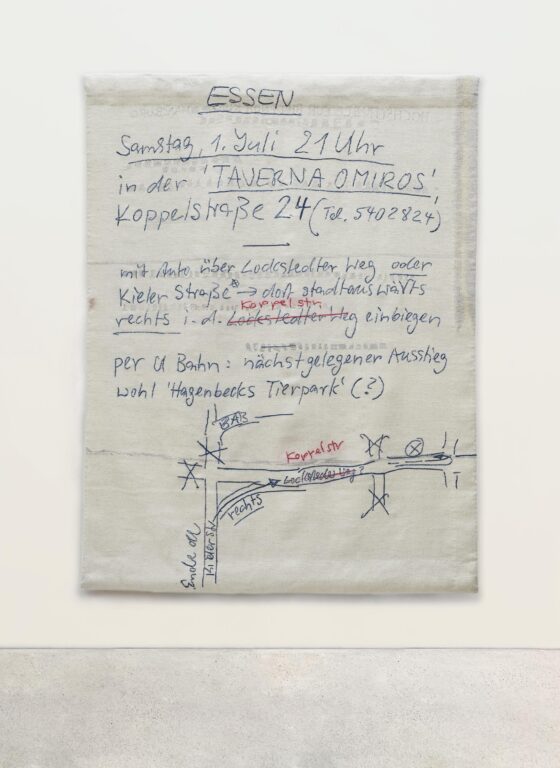 ESSEN
Samstag, 1. Juli 21 Uhr
in der 'TAVERNA OMIROS',
Koppelstraße 24 (Tel. 5402824)
mit Auto über Lockstedter Weg oder
Kieler Straße* → dort stadtauswärts
Koppelstr
rechts i. d. Lockstedter Weg einbiegen
per U Bahn: nächstgelegener Ausstieg
wohl 'Hagenbecks Tierpark' (?)
BAB
Koppelstr
Lockstedter Weg?
rechts
Kieler Str
Ende